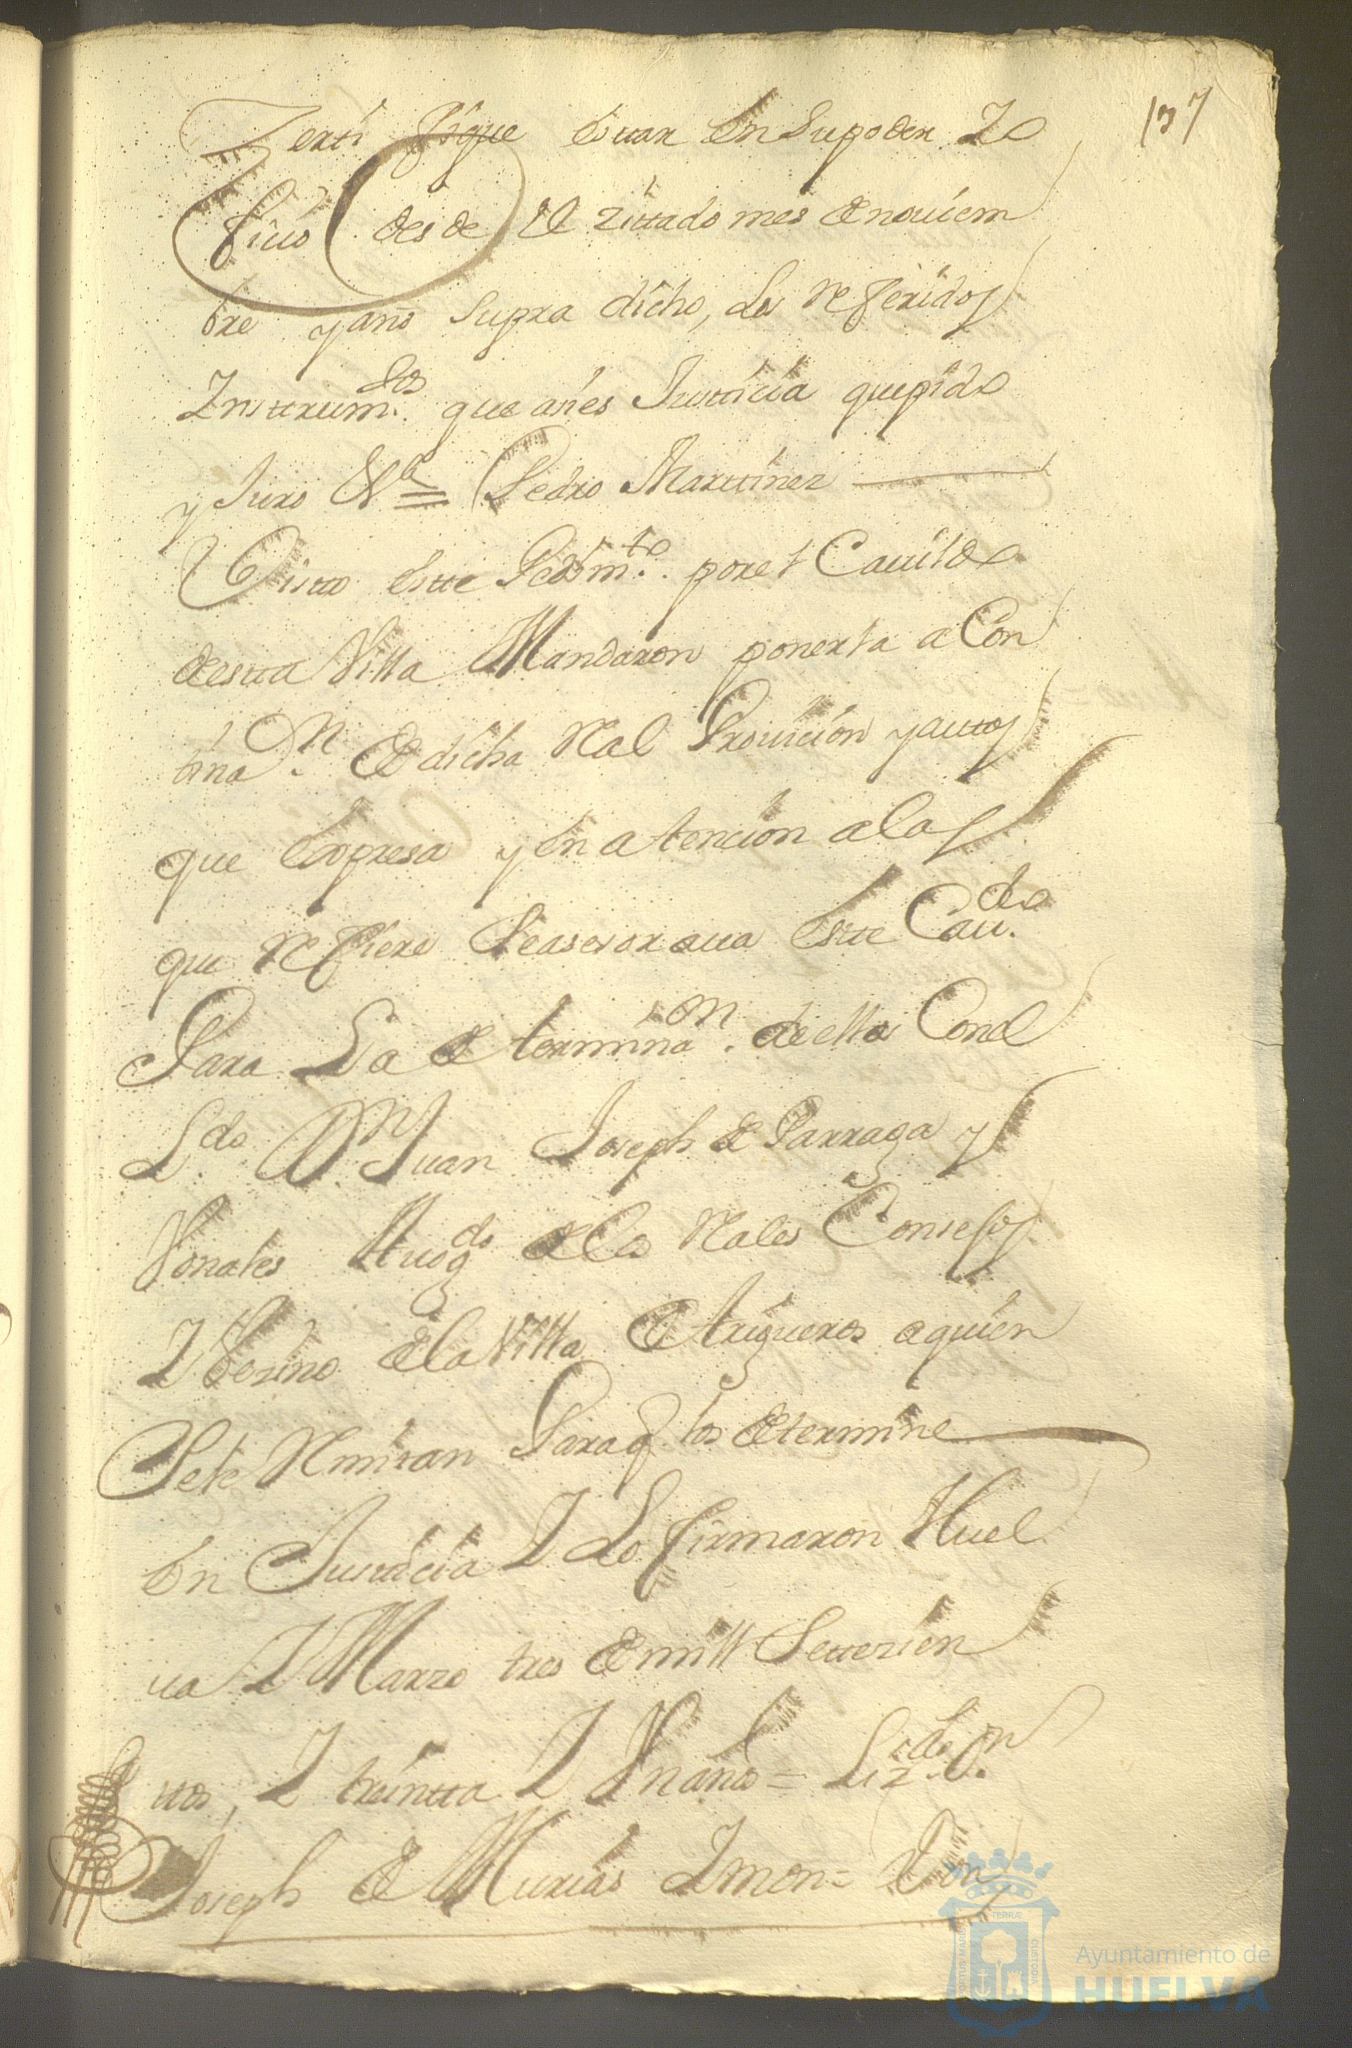 137
Zerti fique estar en Supoder Yo
ficio desde el zittado mes de noviem
bre y año Supra dicho, los referidos
Ynsttrum.tos que an es Justticia que pido
y Juro &.a = Pedro Marttinez
Visto estte Pedim.to por el Cavildo
de estta Villa Mandaron ponerla a Con
tina.on de dicha Real Provicion y auttos
que Expresa y en atencion a los
que refiere Se asesorava estte Cav.do
Para La determina.on de ellos Con el
L.do D.n Juan Joseph de Parraga y
Vonales Avog.do de los Reales Consejos
Y Vezino de la Villa de trigueros a quien
Se le Remitan Para q los determine
En Justicia Y Lo firmaron Huel
va Y Marzo tres de mill Settezien
ttos, Y treintta Y Un años = Liz.do D.n
Joseph de Murias Ymon = Don
Ayuntamiento de
HUELVA